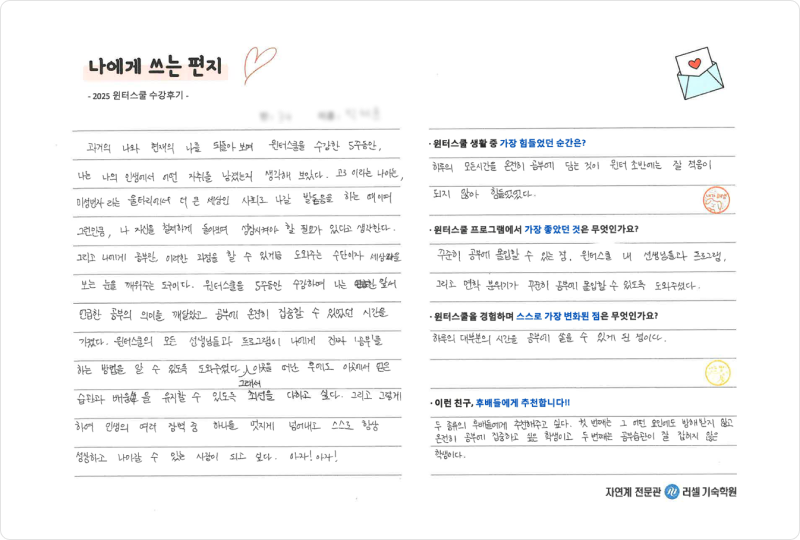 나에게 쓰는 편지
- 2025 윈터스쿨 수강후기 -
과거의 나와 현재의 나를 되돌아 보며 윈터스쿨을 수강한 5주동안,
나는 나의 인생에서 어떤 자취를 남겼는지 생각해 보았다. 고3 이라는 나이는,
미성년자 라는 울타리에서 더 큰 세상인 사회로 나갈 발돋움을 하는 때이며
그런만큼, 나 자신을 철저하게 돌아보며 성찰시켜야 할 필요가 있다고 생각한다.
그리고 나에게 공부란, 이러한 과정을 할 수 있게끔 도와주는 수단이자 세상을
보는 눈을 깨워주는 도구이다. 윈터스쿨을 5주동안 수강하며 나는 앞서
언급한 공부의 의미를 깨달았고 공부에 온전히 집중할 수 있었던 시간을
가졌다. 윈터스쿨의 모든 선생님들과 프로그램이 나에게 진짜 '공부'를
하는 방법을 알 수 있도록 도와주었다. 이곳을 떠난 후에도 이곳에서 얻은
습관과 배움을 유지할 수 있도록 그래서 최선을 다하고 싶다. 그리고 그렇게
하여 인생의 여러 장벽 중 하나를 멋지게 넘어내고 스스로 항상
성장하고 나아갈 수 있는 사람이 되고 싶다. 아자! 아자!
· 윈터스쿨 생활 중 가장 힘들었던 순간은?
하루의 모든시간을 온전히 공부에 담는 것이 윈터 초반에는 잘 적응이
되지 않아 힘들었었다.
· 윈터스쿨 프로그램에서 가장 좋았던 것은 무엇인가요?
꾸준히 공부에 몰입할 수 있는 점, 윈터스쿨 내 선생님들과 프로그램,
그리고 면학 분위기가 꾸준히 공부에 몰입할 수 있도록 도와주셨다.
· 윈터스쿨을 경험하며 스스로 가장 변화된 점은 무엇인가요?
하루의 대부분의 시간을 공부에 쏟을 수 있게 된 점이다.
· 이런 친구, 후배들에게 추천합니다!!
두 종류의 후배들에게 추천해주고 싶다. 첫 번째는 그 어떤 요인에도 방해받지 않고
온전히 공부에 집중하고 싶은 학생이고 두 번째는 공부습관이 잘 잡히지 않은
학생이다.
자연계 전문관 러셀 기숙학원